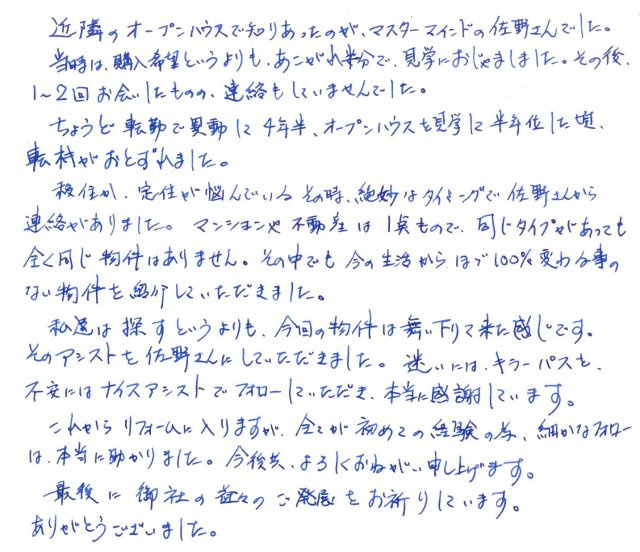 近隣のオープンハウスで知りあったのが、マスターマインドの佐野さんでした。
当時は、購入希望というよりも、あこがれ半分で、見学におじゃましました。その後、
1〜2回お会いしたものの、連絡もしていませんでした。
ちょうど転勤で異動して4年半、オープンハウスを見学して半年位した頃、
転機がおとずれました。
移住か、定住か悩んでいるその時、絶妙なタイミングで佐野さんから
連絡がありました。マンションや不動産は1点もので、同じタイプがあっても
全く同じ物件はありません。その中でも今の生活からほぼ100%変わる事の
ない物件を紹介していただきました。
私達は探すというよりも、今回の物件は舞い下りて来た感じです。
そのアシストを佐野さんにしていただきました。迷いには、キラーパスを、
不安にはナイスアシストでフォローしていただき、本当に感謝しています。
これからリフォームに入りますが、全てが初めての経験の為、細かなフォロー
は、本当に助かりました。今後共、よろしくおねがい申し上げます。
最後に御社の益々のご発展をお祈りしています。
ありがとうございました。